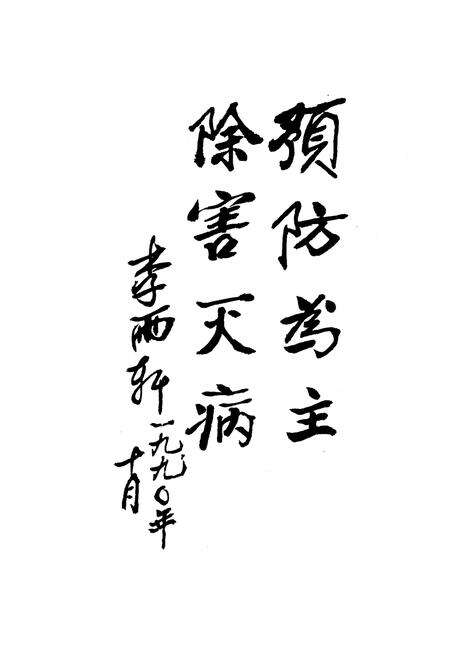 預防為主
除害灭病
李雨轩一九九〇年
十月